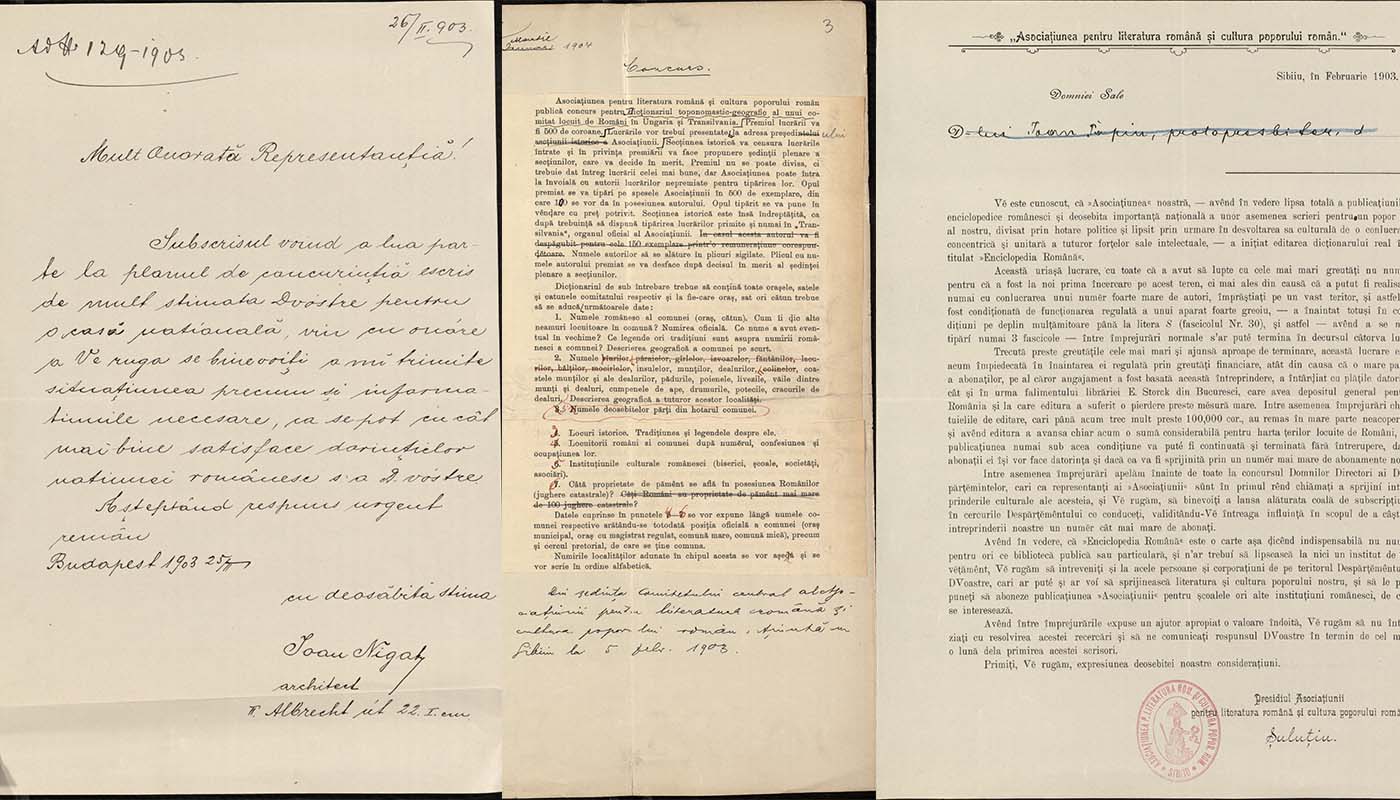 26/II. 903.
Ad № 129-1903.
Mult Onorată Representanţiă!
Subscrisul voind a lua par-
te la planul de concurinţiă escris
de mult stimata Dvóstre pentru
o casă naţională, vin cu onóre
a Vĕ ruga se binevoiţi a mi trimite
situaţiunea precum şi informa-
ţiunile necesare, ca se pot cu cât
mai bine satisface dorinţielor
naţiunei românesc s'a D.vóstre
Aşteptând respuns urgent
remân
Budapest 1903 25/II
cu deosăbită stima
Ioan Nigaly
architect
II. Albrecht út 22. I. em.
3
Martie
Januar 1904
Concurs.
Asociaţiunea pentru literatura română şi cultura poporului român
publică concurs pentru Dicţionariul toponomastic-geografic al unui co-
mitat locuit de Români în Ungaria şi Transilvania. Premiul lucrării va
fi 500 de coroane. Lucrările vor trebui presentate la adresa preşedintelui
secţiunii istorice a Asociaţiunii. Secţiunea istorică va censura lucrările
întrate şi în privinţa premiării va face propunere şedinţii plenare a
secţiunilor, care va decide în merit. Premiul nu se poate divisa, ci
trebuie dat întreg lucrării celei mai bune, dar Asociaţiunea poate întra
la învoială cu autorii lucrărilor nepremiate pentru tipărirea lor. Opul
premiat se va tipări pe spesele Asociaţiunii în 500 de exemplare, din
care 100 se vor da în posesiunea autorului. Opul tipărit se va pune în
vêndare cu preţ potrivit. Secţiunea istorică este însă îndreptăţită, ca
după trebuinţă să dispună tipărirea lucrărilor primite şi numai în „Tran-
silvania", organul oficial al Asociaţiunii. In casul acesta autorul va fi
despăgubit pentru cele 150 exemplare printr'o remuneraţiune corespun-
ḍĕtoare. Numele autorilor să se alăture în plicuri sigilate. Plicul cu nu-
mele autorului premiat se va desface după decisul în merit al şedinţei
plenare a secţiunilor.
Dicţionarul de sub întrebare trebue să conţină toate oraşele, satele
şi cătunele comitatului respectiv şi la fie-care oraş, sat ori cătun trebue
să se aducă următoarele date:
1. Numele românesc al comunei (oraş, cătun). Cum îi ḍic alte
neamuri locuitoare în comună? Numirea oficială. Ce nume a avut even-
tual în vechime? Ce legende ori tradiţiuni sunt asupra numirii româ-
nesci a comunei? Descrierea geografică a comunei pe scurt.
2. Numele rîurilor, păraielor, gîrlelor, isvoarelor, fântânilor, lacu-
rilor, bălţilor, mocirlelor, insulelor, munţilor, dealurilor, colinelor, coa-
stele munţilor şi ale dealurilor, pădurile, poienele, livezile, văile dintre
munţi şi dealuri, cumpenele de ape, drumurile, potecile, cracurile de
dealuri. Descrierea geografică a tuturor acestor localităţi.
3. Numele deosebitelor părţi din hotarul comunei.
3. Locuri istorice. Tradiţiunea şi legendele despre ele.
4. Locuitorii români ai comunei după numărul, confesiunea şi
ocupaţiunea lor.
5. Instituţiunile culturale românesci (biserici, şcoale, societăţi,
asociări).
Câtă proprietate de pământ se află în posesiunea Românilor
(jughere catastrale)? Câţi Români au proprietate de pământ mai mare
de 100 jughere catastrale?
Datele cuprinse în punctele 4-6 se vor expune lângă numele co-
munei respective arătându-se totodată posiţia oficială a comunei (oraş
municipal, oraş cu magistrat regulat, comună mare, comună mică), precum
şi cercul pretorial, de care se ţine comuna.
Numirile localităţilor adunate în chipul acesta se vor aşeḍa şi se
vor scrie în ordine alfabetică.
Din şedinţa comitetului central al Aso-
ciaţiunii pentru literatura română şi
cultura poporului român, ţinută în
Sibiiu la 5 Febr. 1903.
„Asociaţiunea pentru literatura română şi cultura poporului român."
Sibiiu, în Februarie 1903.
Domniei Sale
D-lui Ioan Papiu, protopresbiter, d
Vĕ este cunoscut, că »Asociaţiunea« noastră, — avênd în vedere lipsa totală a publicaţiunil
enciclopedice româneşti şi deosebita importanţă naţională a unor asemenea scrieri pentru un popor
al nostru, divisat prin hotare politice şi lipsit prin urmare în desvoltarea sa culturală de o conlucra
concentrică şi unitară a tuturor forţelor sale intelectuale, — a iniţiat editarea dicţionarului real în
titulat »Enciclopedia Română«.
Această uriaşă lucrare, cu toate că a avut să lupte cu cele mai mari greutăţi nu num
pentru că a fost la noi prima încercare pe acest teren, ci mai ales din causă că a putut fi realisa
numai cu conlucrarea unui numĕr foarte mare de autori, împrăştiaţi pe un vast teritor, şi astfel
fost condiţionată de funcţionarea regulată a unui aparat foarte greoiu, — a înaintat totuşi în co
diţiuni pe deplin mulţămitoare până la litera S (fascicolul Nr. 30), şi astfel — avênd a se m
tipări numai 3 fascicole — între împrejurări normale s'ar puté termina în decursul cătorva lu
Trecută preste greutăţile cele mai mari şi ajunsă aproape de terminare, această lucrare e
acum împiedecată în înaintarea ei regulată prin greutăţi financiare, atât din causa că o mare pa
a abonaţilor, pe al căror angajament a fost basată această întreprindere, a întârḍiat cu plăţile datori
cât şi în urma falimentului librăriei E. Storck din Bucuresci, care avea depositul general pent
România şi la care editura a suferit o pierdere preste mĕsură mare. Intre asemenea împrejurări che
tuielile de editare, cari până acum trec mult preste 100,000 cor., au remas în mare parte neacoperi
şi editura a avansa chiar acum o sumă considerabilă pentru harta ţerilor locuite de Români,
publicaţiunea numai sub acea condiţiune va puté fi continuată şi terminată fără întrerupere, da
abonaţii ei îşi vor face datorinţa şi dacă va fi sprijinită prin un numĕr mai mare de abonamente no
Intre asemenea împrejurări apelăm înainte de toate la concursul Domnilor Directori ai De
părţemintelor, cari ca representanţi ai »Asociaţiunii« sûnt în primul rênd chiămaţi a sprijini într
prinderile culturale ale acesteia, şi Vĕ rugăm, să binevoiţi a lansa alăturata coală de subscripţi
în cercurile Despărţĕmêntului ce conduceţi, validitându-Vĕ întreaga influinţă în scopul de a câşti
intreprinderii noastre un numĕr cât mai mare de abonaţi.
Avênd în vedere, că »Enciclopedia Română« este o carte aşa ḍicênd indispensabilă nu num
pentru ori ce bibliotecă publică sau particulară, şi n'ar trebui să lipsească la nici un institut de
vĕţămênt, Vĕ rugăm să intreveniţi şi la acele persoane şi corporaţiuni de pe teritorul Despărţĕmêntu
DVoastre, cari ar puté şi ar voi să sprijinească literatura şi cultura poporului nostru, şi să le p
puneţi să aboneze publicaţiunea »Asociaţiunii« pentru şcoalele ori alte instituţiuni româneşti, de c
se interesează.
Avênd între împrejurările expuse un ajutor apropiat o valoare îndoită, Vĕ rugăm să nu înt
ziaţi cu resolvirea acestei recercări şi să ne comunicaţi respunsul DVoastre în termin de cel m
o lună dela primirea acestei scrisori.
Primiţi, Vĕ rugăm, expresiunea deosebitei noastre consideraţiuni.
Presidiul Asociaţiunii
pentru literatura română şi cultura poporului româ
Şuluţiu.
ASOCIAŢIUNEA P. LITERATURA ROM. ŞI CULTURA POPOR. ROM.
SIBIIU